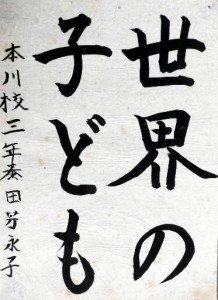 世界の
子ども
本川校三年泰田芳永子